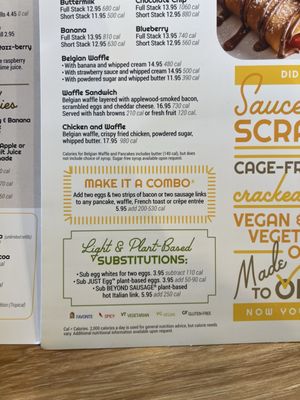 Buttermilk
Full Stack 12.95 680 cal
Short Stack 11.95 500 cal
Full Stack 13.95 1060 cal
Short Stack 12.95 880 cal
Banana
Full Stack 13.95 810 cal
Short Stack 12.95 630 cal
Blueberry
Full Stack 13.95 740 cal
Short Stack 12.95 560 cal
Belgian Waffle
• With banana and whipped cream 14.95 480 cal
• With strawberry sauce and whipped cream 14.95 500 cal
• With powdered sugar and whipped butter 11.95 390 cal
Waffle Sandwich
Belgian waffle layered with applewood-smoked bacon,
scrambled eggs and cheddar cheese. 16.95 730 cal
Served with hash browns 210 cal or fresh fruit 120 cal
Chicken and Waffle
Belgian waffle, crispy fried chicken, powdered sugar,
whipped butter. 17.95 980 cal
Calories for Belgian Waffle and Pancakes includes butter (140 cal), but does
not include choice of syrup. Sugar-free syrup available upon request.
MAKE IT A COMBO
Add two eggs & two strips of bacon or two sausage links
to any pancake, waffle, French toast or crêpe entrée
5.95 add 200-530 cal
Light & Plant-Based
SUBSTITUTIONS:
• Sub egg whites for two eggs. 3.95 subtract 110 cal
• Sub JUST Egg™ plant-based eggs. 3.95 add 50-90 cal
• Sub BEYOND SAUSAGE® plant-based
hot Italian link. 5.95 add 250 cal
FAVORITE SPICY VT VEGETARIAN VG VEGAN GLUTEN-FREE
Cal = Calories. 2,000 calories a day is used for general nutrition advice, but calorie needs
vary. Additional nutritional information available upon request.
DID
Sauce
SCRA
CAGE-FR
cracked
VEGAN
VEGET
Made
TO
NOW YOU